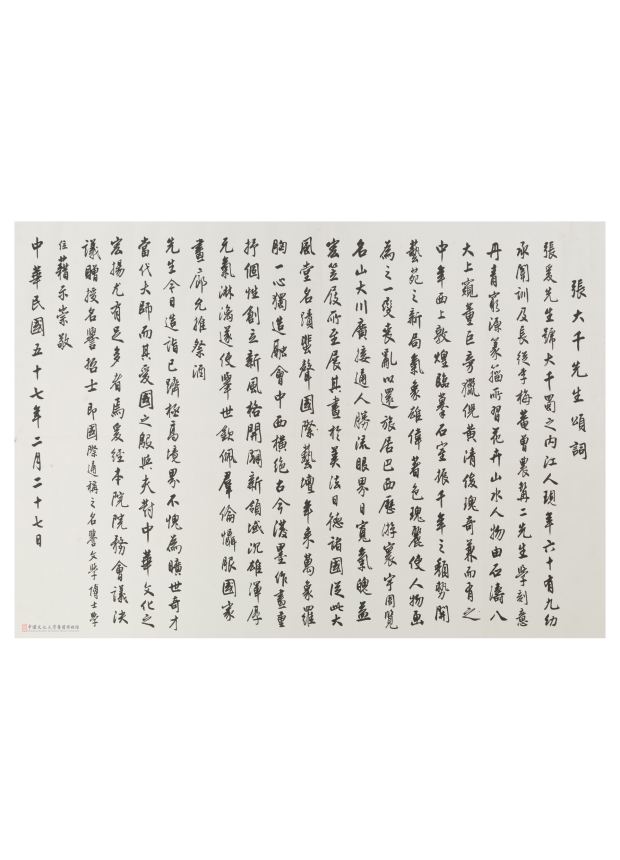 張大千先生頌詞
張爰先生號大千蜀之內江人現年六十有九幼
承閫訓及長從李梅菴曾農髯二先生學刻意
丹青窮源篆籀所習花卉山水人物由石濤八
大上窺董巨旁獵倪黃清俊瑰奇兼而有之
中年西上敦煌臨摹石室振千年之頹勢開
藝苑之新局氣象雄偉著色瑰麗使人物畫
為之一變喪亂以還旅居巴西歷游寰宇周覽
名山大川廣接通人勝流眼界日寬氣魄益
宏笠屐所至展其畫於美法日德諸國從此大
風堂名蹟蜚聲國際藝壇年來萬象羅
胸一心獨造融會中西橫絕古今潑墨作畫重
抒個性創立新風格開闢新領域沉雄渾厚
元氣淋漓遂使舉世欽佩羣倫懾服國家
畫廊允推祭酒
先生今日造詣已躋極高境界不愧為曠世奇才
當代大師而其愛國之殷與夫對中華文化之
宏揚尤有足多者焉爰經本院院務會議決
議贈授名譽哲士即國際通稱之名譽文學博士學
位藉示崇敬
中華民國五十七年二月二十七日
中國文化大學華岡博物館